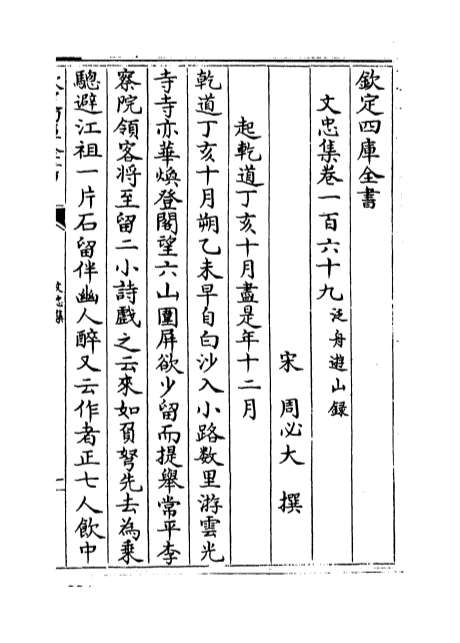 欽定四庫全書
文忠集卷一百六十九 泛舟遊山錄
宋 周必大 撰
起乾道丁亥十月盡是年十二月
乾道丁亥十月朔乙未早自白沙入小路数里游雲光
寺寺亦華煥登閣望六山圍屏欲少留而提舉常平李
察院領客将至留二小詩戲之云來如負弩先去為乗
驄避江祖一片石留伴幽人醉又云作者正七人飲中
文忠集